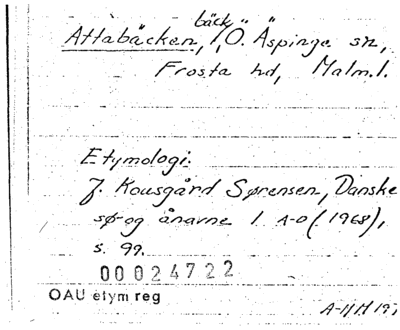 bäck
Attabäcken, i Ö. Äspinge sn,
Frosta hd, Malm. l.
Etymologi:
J. Kousgård Sørensen, Danske
sø- og ånavne 1 A-D (1968),
s. 99.
00024722
OAU etym reg